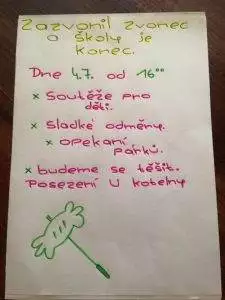 Zazvonil zvonec
a školy je
konec.
Dne 4.7. od 16⁰⁰
× Soutěže pro
děti.
× Sladké odměny.
× opekaní
párků.
× budeme se těšit.
Posezení U kotelny